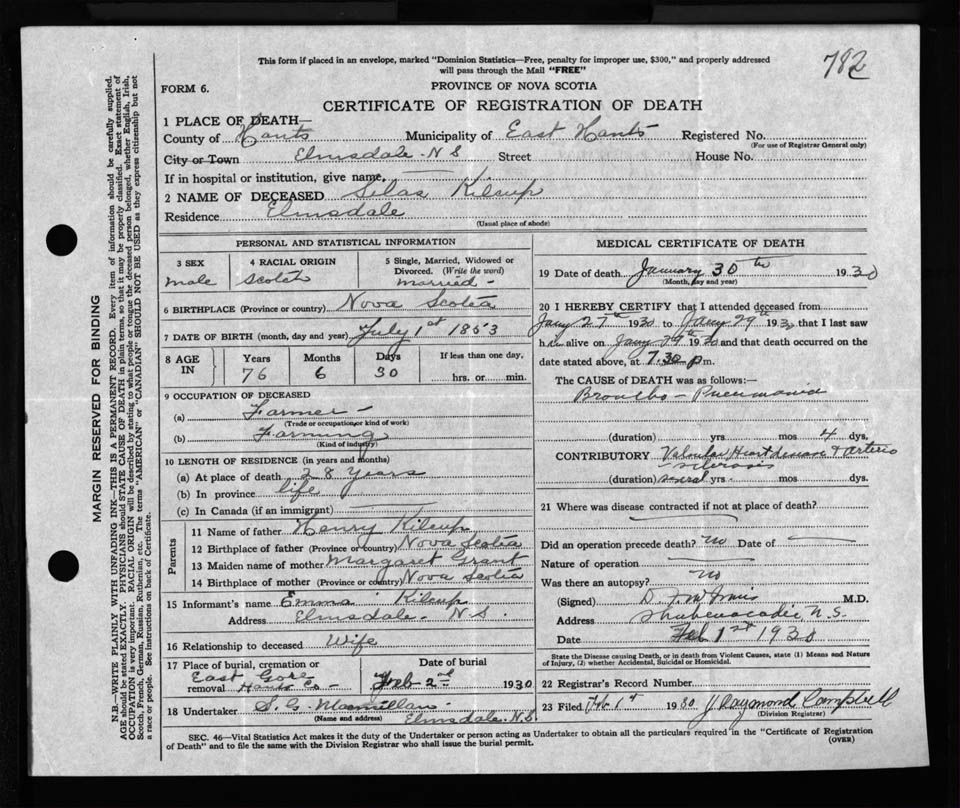 782
This form if placed in an envelope, marked "Dominion Statistics—Free, penalty for improper use, $300," and properly addressed
will pass through the Mail "FREE"
FORM 6.
PROVINCE OF NOVA SCOTIA
CERTIFICATE OF REGISTRATION OF DEATH
1 PLACE OF DEATH—
County of Hants Municipality of East Hants Registered No.
(For use of Registrar General only)
City or Town Elmsdale. N S Street House No.
If in hospital or institution, give name,
2 NAME OF DECEASED Silas Kilcup
Residence Elmsdale
(Usual place of abode)
PERSONAL AND STATISTICAL INFORMATION
3 SEX 4 RACIAL ORIGIN 5 Single, Married, Widowed or
Divorced. (Write the word)
male Scotch married -
6 BIRTHPLACE (Province or country) Nova Scotia
7 DATE OF BIRTH (month, day and year) July 1st 1853
8 AGE IN Years Months Days If less than one day,
76 6 30 hrs. or min.
9 OCCUPATION OF DECEASED
(a) Farmer -
(Trade or occupation, or kind of work)
(b) Farming
(Kind of industry)
10 LENGTH OF RESIDENCE (in years and months)
(a) At place of death 28 years
(b) In province life
(c) In Canada (if an immigrant)
Parents
11 Name of father Henry Kilcup
12 Birthplace of father (Province or country) Nova Scotia
13 Maiden name of mother Margaret Grant
14 Birthplace of mother (Province or country) Nova Scotia
15 Informant's name Emma Kilcup
Address Elmsdale. N.S.
16 Relationship to deceased Wife
17 Place of burial, cremation or Date of burial
removal East Gore Hants Co Feb-2nd 1930
18 Undertaker S. G. Macmillan
(Name and address) Elmsdale. N.S
MEDICAL CERTIFICATE OF DEATH
19 Date of death January 30th 1930
(Month, day and year)
20 I HEREBY CERTIFY that I attended deceased from
Jany 27th 1930 to Jany 29th 1930 that I last saw
him alive on Jany 29th 1930 and that death occurred on the
date stated above, at 7.30 p m.
The CAUSE OF DEATH was as follows:—
Broncho-Pneumonia
(duration) yrs. mos 4 dys.
CONTRIBUTORY Valvular Heart disease & Arterio
- sclerosis
(duration) several yrs. mos. dys.
21 Where was disease contracted if not at place of death?
Did an operation precede death? no Date of
Nature of operation
Was there an autopsy? no
(Signed) M.D.
Address Shubenacadie N.S.
Date Feb 1st 1930
State the Disease causing Death, or in death from Violent Causes, state (1) Means and Nature
of Injury, (2) whether Accidental, Suicidal or Homicidal.
22 Registrar's Record Number
23 Filed Feb 1st 1930 J Raymond Campbell
(Division Registrar)
SEC. 46—Vital Statistics Act makes it the duty of the Undertaker or person acting as Undertaker to obtain all the particulars required in the "Certificate of Registration
of Death" and to file the same with the Division Registrar who shall issue the burial permit.
(OVER)
MARGIN RESERVED FOR BINDING
N.B.—WRITE PLAINLY WITH UNFADING INK—THIS IS A PERMANENT RECORD. Every item of information should be carefully supplied.
AGE should be stated EXACTLY. PHYSICIANS should STATE CAUSE OF DEATH in plain terms, so that it may be properly classified. Exact statement of
OCCUPATION is very important. RACIAL ORIGIN will be described by stating to what people or tongue the deceased person belonged, whether English, Irish,
Scotch, French, German, Russian, Ruthenian, etc. The terms "AMERICAN" or "CANADIAN" SHOULD NOT BE USED as they express citizenship but not
a race or people. See instructions on back of Certificate.